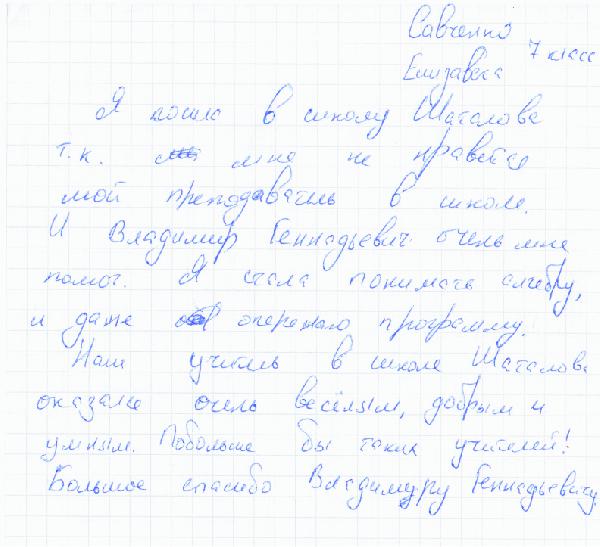 Савченко
7 класс
Елизавета
Я пошла в школу Шаталова
т.к. мне не нравится
мой преподаватель в школе.
И Владимир Геннадьевич очень мне
помог. Я стала понимать алгебру,
и даже опережаю программу.
Наш учитель в школе Шаталова
оказался очень весёлым, добрым и
умным. Побольше бы таких учителей!
Большое спасибо Владимиру Геннадьевичу